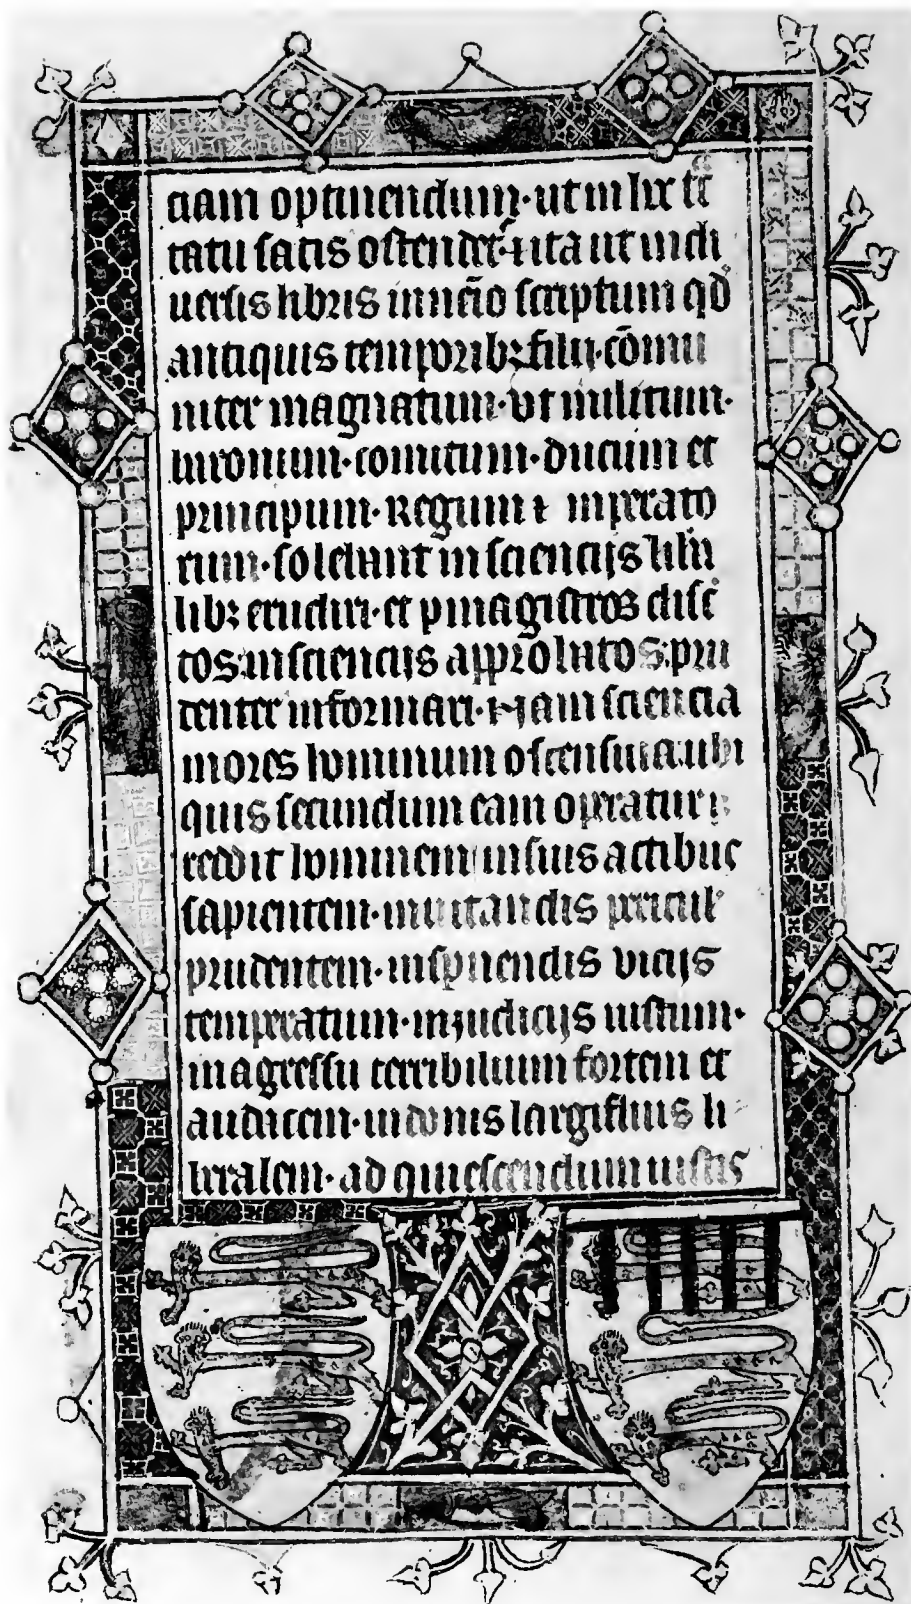 ciam optinendum·ut in hoc tͣc
tatu satis ostendet̃·⁊ ita ut in di
uersis libris inuẽio scriptum qd̾
antiquis temporibꝫ filij·cõmu
niter magnatum·ut militum·
baronum·comitum·ducum et
principum·Regum ⁊ inperato
rum·solebant in sciencijs libera
libꝫ erudiri·et p magistros discre
tos in sciencijs approbatos·pru
denter informari·⁊ nam sciencia
mores hominum ostensiua ubi
quis secundum eam operatur
reddit hominem in suis actibus
sapientem·in uitandis pericul̾
prudentem·in spernendis vicijs
temperatum·in iudicijs iustum·
in agressu terribilium fortem et
audacem·in donis largifluis li
beralem·ad quiescendum iustis